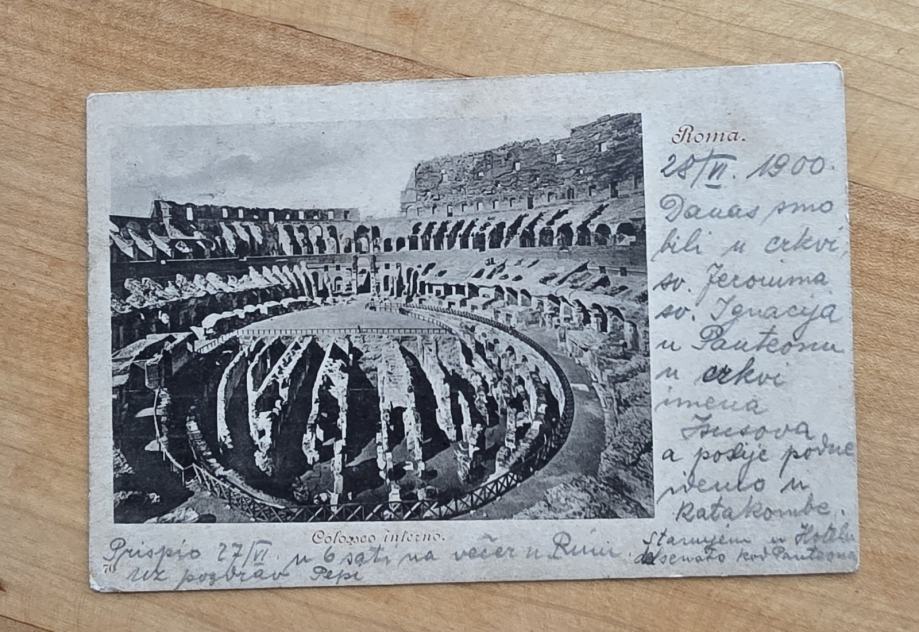 Roma.
28/VI. 1900.
Danas smo
bili u crkvi
sv. Jeronima
sv. Ignacija
u Panteonu
u crkvi
imena
Isusova
a poslije podne
idemo u
katakombe.
Coloseo interno.
Prispio 27/VI. u 6 sati na večer u Rim.
uz pozdrav Pepi
Stanujem u Hotelu
kod Panteona